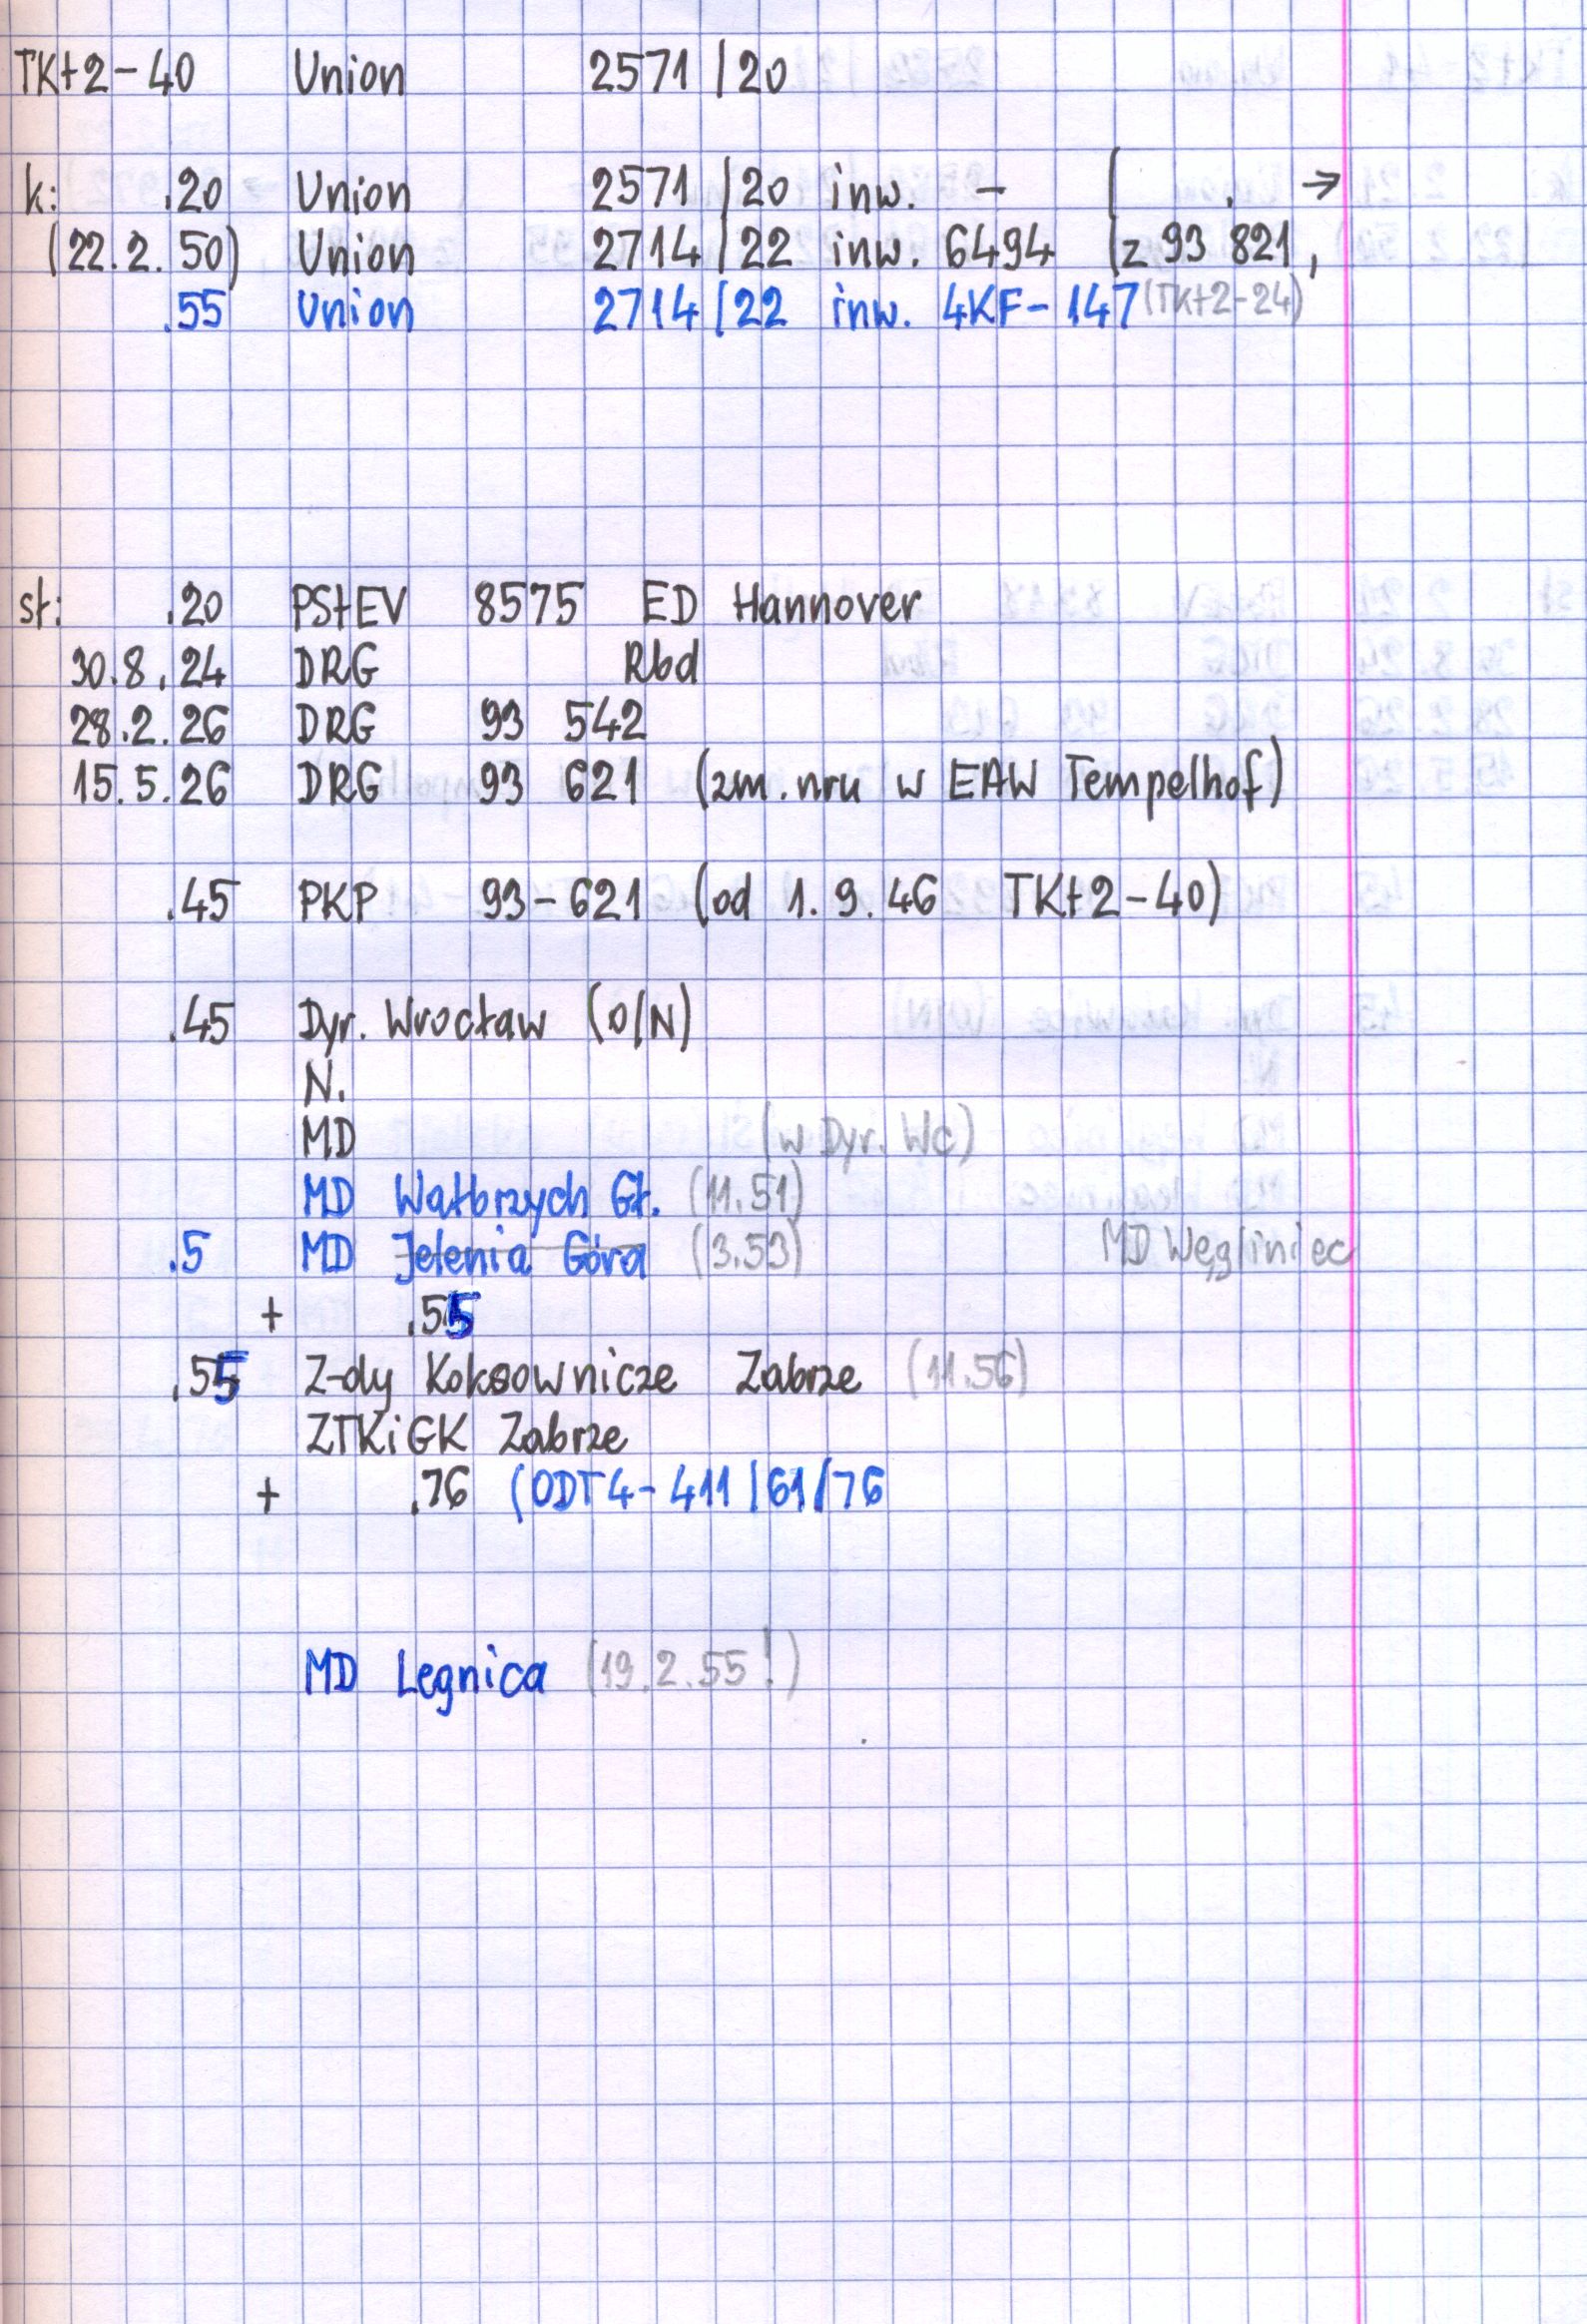 TKt2-40 Union 2571/20
k: .20 Union 2571/20 inw. - ( . →
(22.2.50) Union 2714/22 inw. 6494 (z 93 821,
.55 Union 2714/22 inw. 4KF-147 (TKt2-24)
st: .20 PStEV 8575 ED Hannover
30.8.24 DRG Rbd
28.2.26 DRG 93 542
15.5.26 DRG 93 621 (zm. nru w EAW Tempelhof)
.45 PKP 93-621 (od 1.9.46 TKt2-40)
.45 Dyr. Wrocław (O/N)
N.
MD (w Dyr. Wc)
MD Wałbrzych Gł. (11.51)
.5 MD Jelenia Góra (3.53) MD Węgliniec
+ .55
.55 Z-dy Koksownicze Zabrze (11.56)
ZTKiGK Zabrze
+ .76 (ODT4-411/61/76
MD Legnica (19.2.55!)